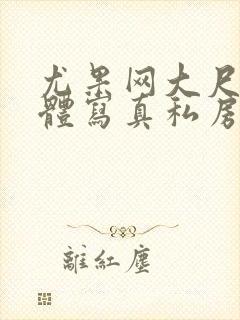 尤果网大尺
體寫真私房
離紅塵